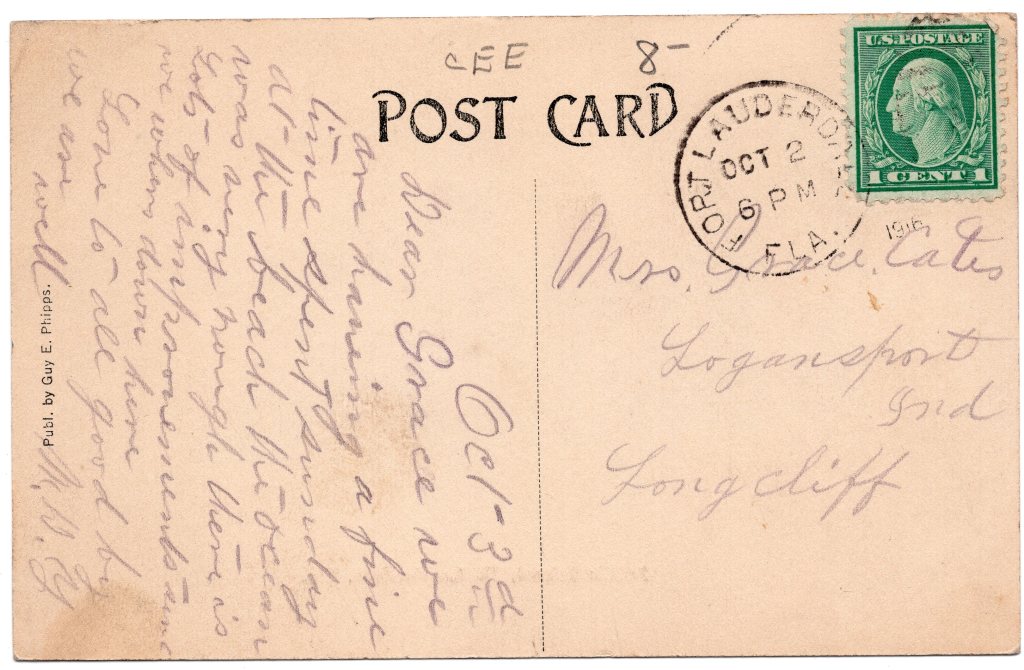 CEE 8-
POST CARD
U.S. POSTAGE
1 CENT 1
FORT LAUDERDA
OCT 2
6 PM
FLA.
1916
Mrs. Grace Cates
Logansport
Ind
Longcliff
Oct-3d
Dear Grace we
are haveing a fine
time spent sunday
at the beach the ocean
was very rough there is
lots of improvements since
we where down here
Love to all good by
we are well
Publ. by Guy E. Phipps.